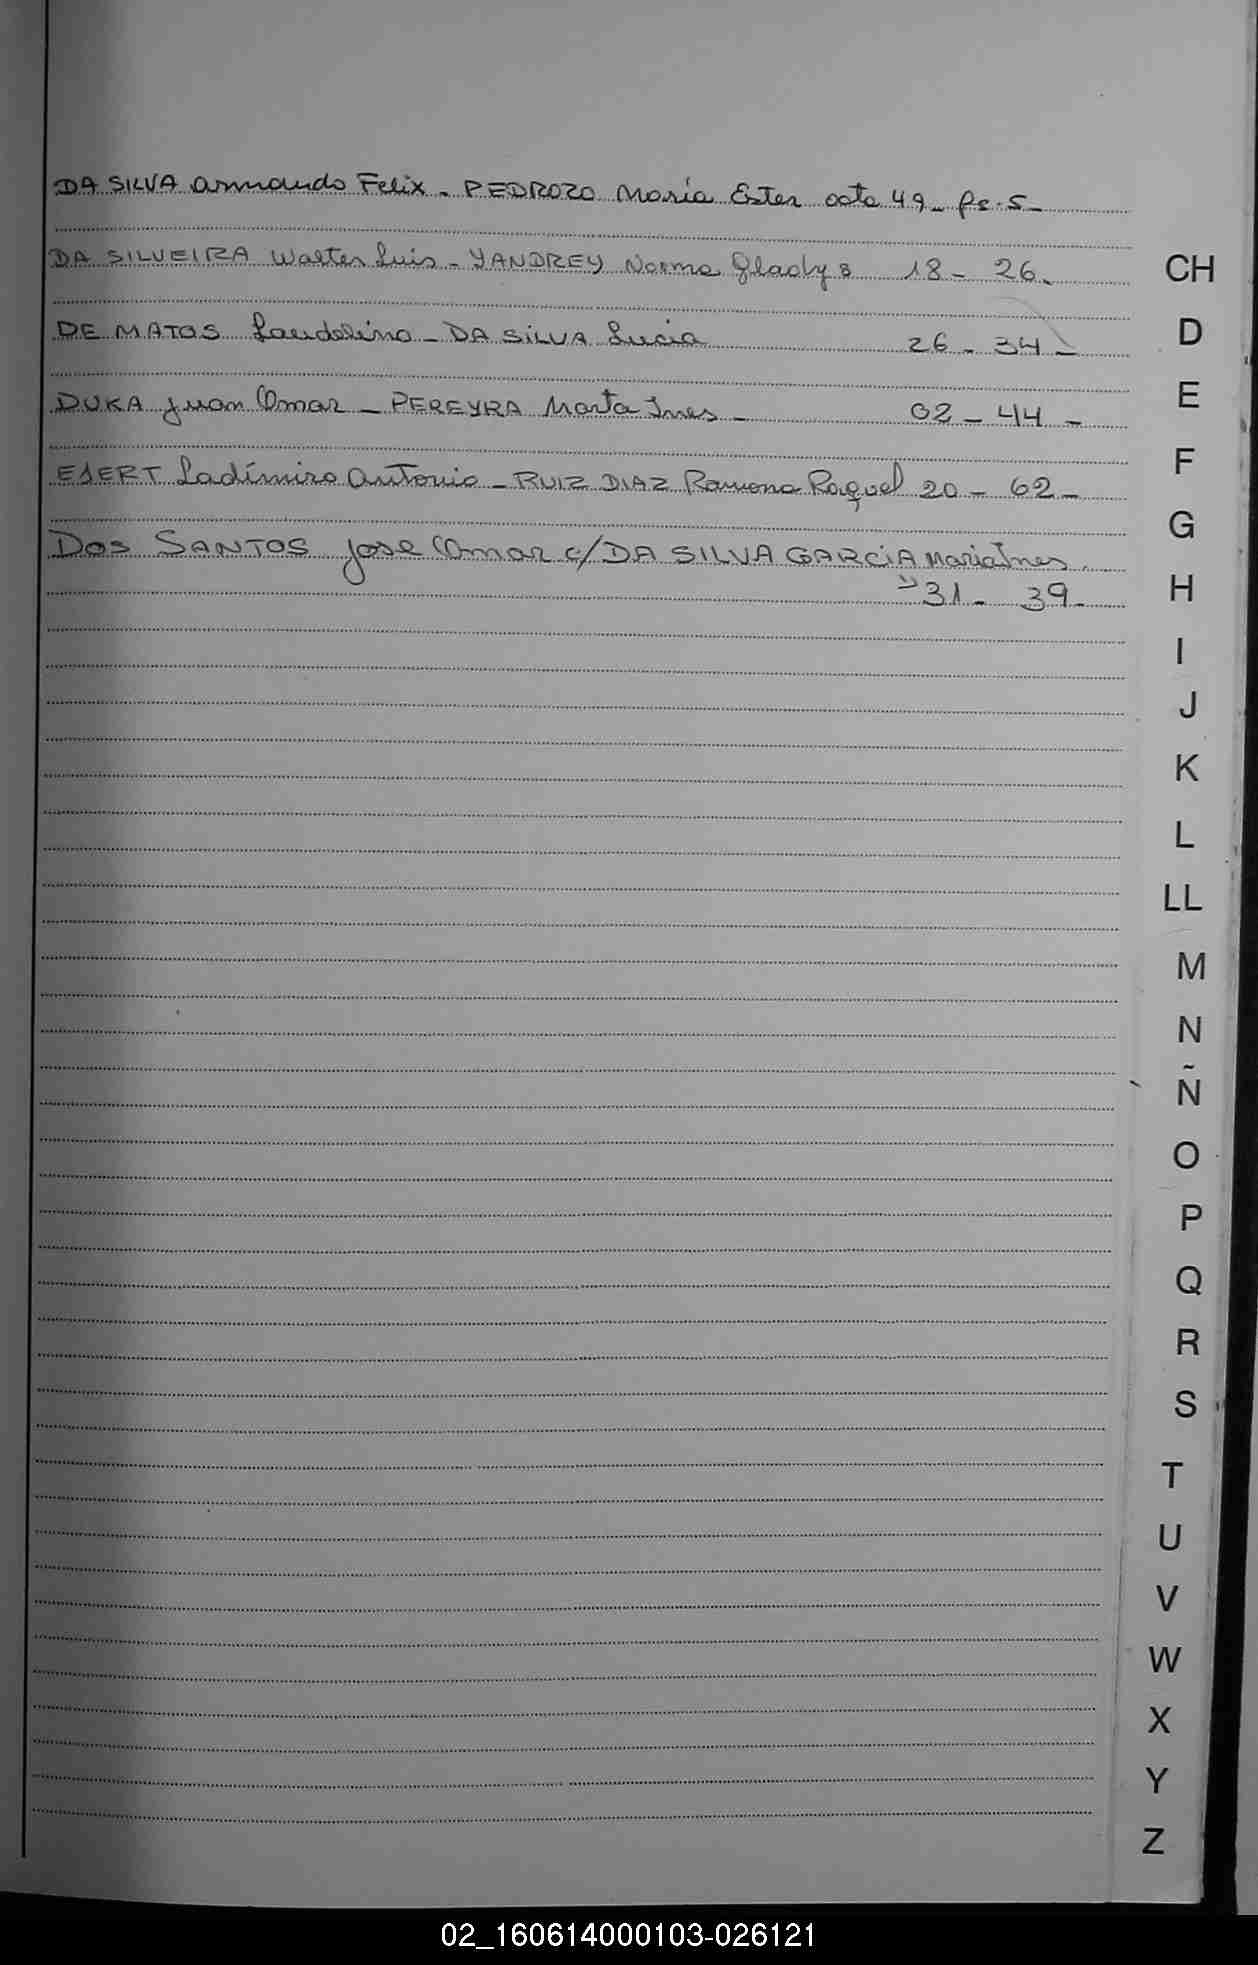 DA SILVA Armando Felix - PEDROZO María Ester acta 49 - fs. 5 -
DA SILVEIRA Walter Luis - YANDREY Norma Gladys 18 - 26 -
DE MATOS Laudelino - DA SILVA Lucia 26 - 34 -
DUKA Juan Omar - PEREYRA Marta Ines - 02 - 44 -
Ladímiro Antonio - RUIZ DIAZ Ramona Raquel 20 - 62 -
DOS SANTOS Jose Omar c/ DA SILVA GARCIA Maria Ines
" 31 - 39 -
CH
D
E
F
G
H
I
J
K
L
LL
M
N
Ñ
O
P
Q
R
S
T
U
V
W
X
Y
Z
02_160614000103-026121